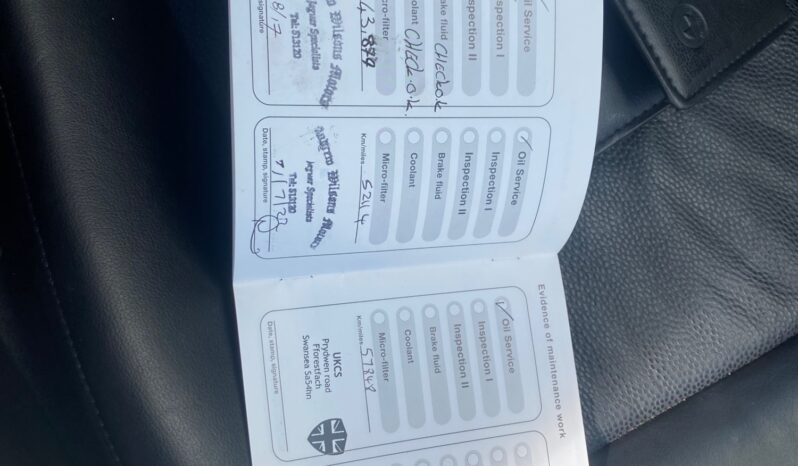 Oil Service
Inspection I
Inspection II
Brake fluid CHECK O.K
Coolant CHECK O.K.
Micro-filter
43,899
Wilsons Motors
Jaguar Specialists
Tel: 513120
8/7
signature
Oil Service
Inspection I
Inspection II
Brake fluid
Coolant
Micro-filter
Km/miles 52114
Wilsons Motors
Jaguar Specialists
Tel: 513120
Date, stamp, signature
Evidence of maintenance work
Oil Service
Inspection I
Inspection II
Brake fluid
Coolant
Micro-filter
Km/miles 57848
UKCS
Prydwen road
Fforestfach
Swansea Sa54hn
Date, stamp, signature